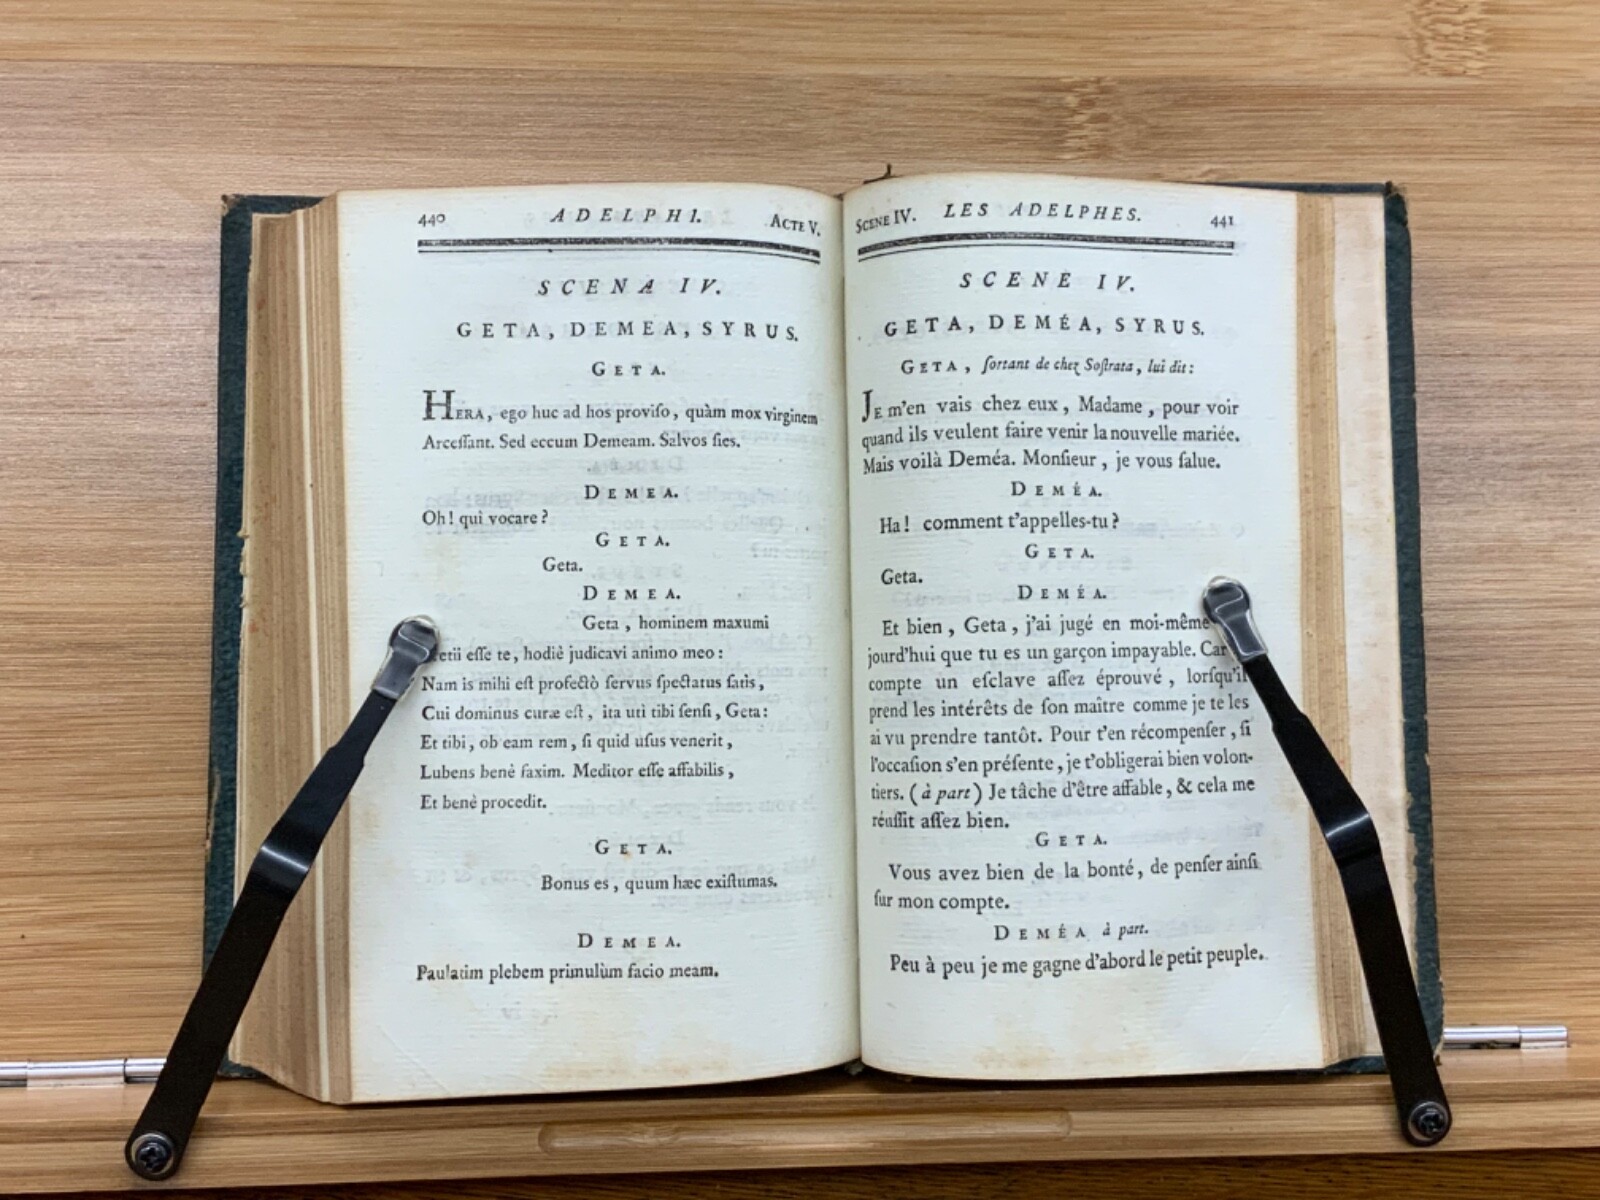 440 ADELPHI. ACTE V.
SCENA IV.
GETA, DEMEA, SYRUS.
GETA.
HERA, ego huc ad hos proviſo, quàm mox virginem
Arceſſant. Sed eccum Demeam. Salvos ſies.
DEMEA.
Oh! quì vocare?
GETA.
Geta.
DEMEA.
Geta, hominem maxumi
etii eſſe te, hodiè judicavi animo meo:
Nam is mihi eſt profectò ſervus ſpectatus ſatis,
Cui dominus curæ eſt, ita uti tibi ſenſi, Geta:
Et tibi, ob eam rem, ſi quid uſus venerit,
Lubens benè faxim. Meditor eſſe affabilis,
Et benè procedit.
GETA.
Bonus es, quum hæc exiſtumas.
DEMEA.
Paulatim plebem primulùm facio meam.
SCENE IV. LES ADELPHES. 441
SCENE IV.
GETA, DEMÉA, SYRUS.
GETA, ſortant de chez Soſtrata, lui dit:
JE m'en vais chez eux, Madame, pour voir
quand ils veulent faire venir la nouvelle mariée.
Mais voilà Deméa. Monſieur, je vous ſalue.
DEMÉA.
Ha! comment t'appelles-tu?
GETA.
Geta.
DEMÉA.
Et bien, Geta, j'ai jugé en moi-même
jourd'hui que tu es un garçon impayable. Car
compte un eſclave aſſez éprouvé, lorſqu'il
prend les intérêts de ſon maître comme je te les
ai vu prendre tantôt. Pour t'en récompenſer, ſi
l'occaſion s'en préſente, je t'obligerai bien volon-
tiers. (à part) Je tâche d'être affable, & cela me
réuſſit aſſez bien.
GETA.
Vous avez bien de la bonté, de penſer ainſi
ſur mon compte.
DEMÉA à part.
Peu à peu je me gagne d'abord le petit peuple.